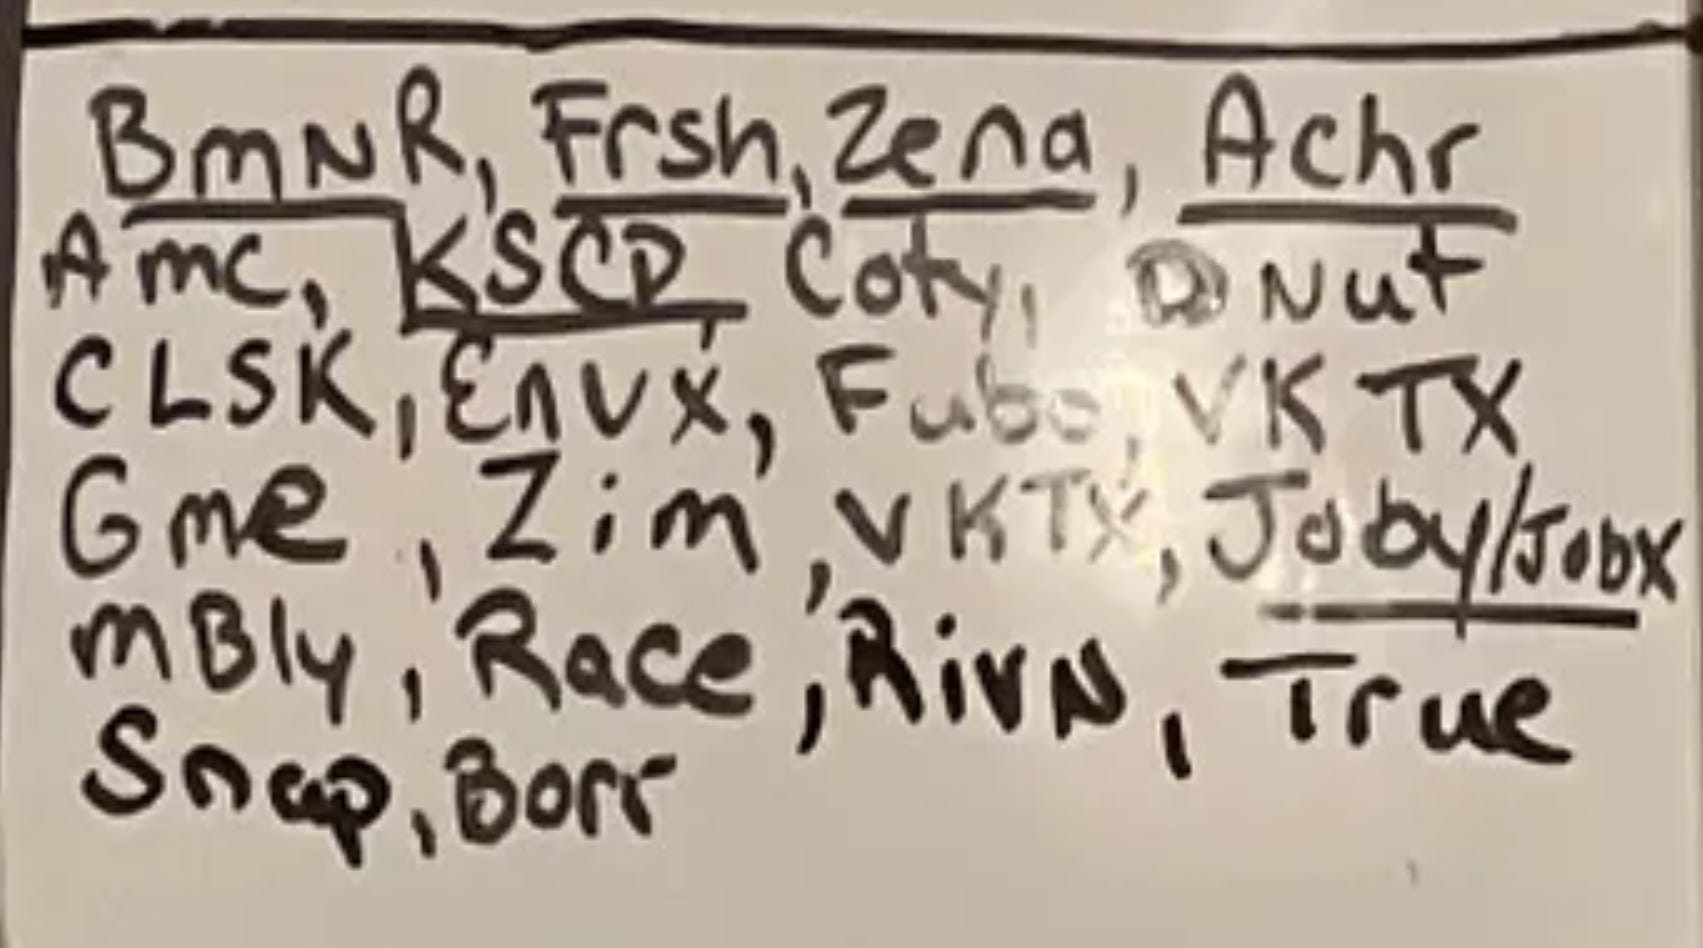 BmNR, Frsh, Zena, Achr
Amc, KSCP Coty, DNut
CLSK, EnVX, Fubo, VKTX
Gme, Zim, VKTX, Joby/Jobx
mBly, Race, RivN, True
Snap, Borr